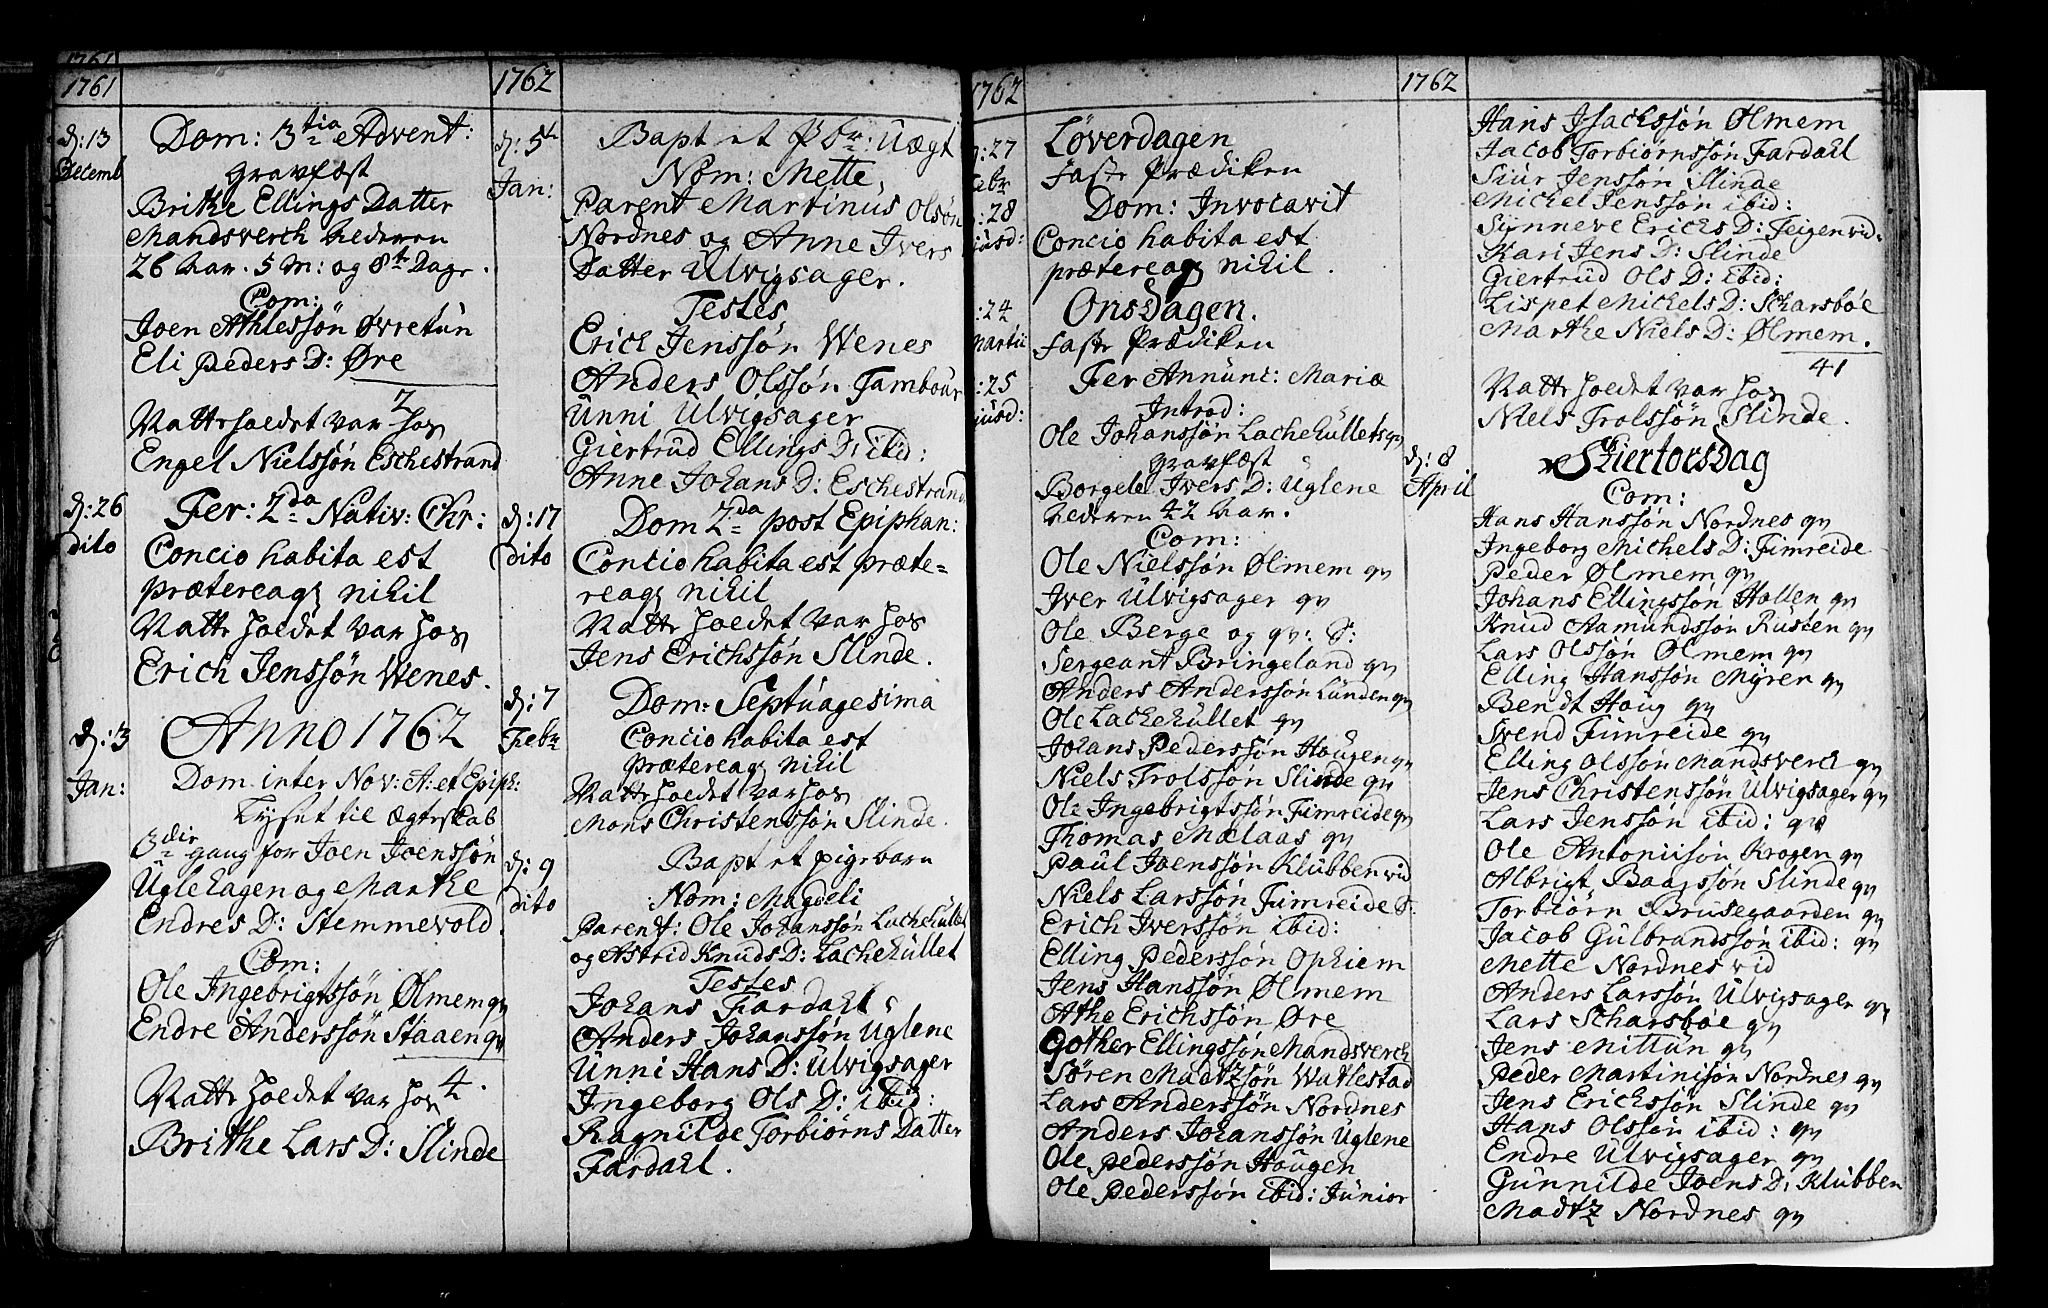 1761
1761
d: 13
Decemb
Dom: 3tia Advent:
gravfæst
Brithe Ellings Datter
Mandsverch hederen
26 aar. 5 M: og 8te Dage.
Com:
Joen Athlessøn Øvretun
Eli Peders D: Øre
2
Natteholdet var hos
Engel Nielssøn Eschestrand
d: 26
dito
Fer: 2da Nativ: Chr:
Concio habita est
prætereaq nihil
Natteholdet var hos
Erich Jenssøn Wenes.
d: 3
Jan:
Anno 1762
Dom. inter Nov: A: et Epiph:
Lyset til Ægteskab
3die gang for Joen Joenssøn
Uglehagen og Marthe
Endres D: Stemmevold.
Com:
Ole Ingebrigtssøn Ølmem qv
Endre Anderssøn Staaen qv
4.
Natteholdet var hos
Brithe Lars D: Slinde
1762
d: 5te
Jan:
Bapt et Pbr: Uægt
Nom: Mette,
Parent Martinus Olsøn
Nordnes og Anne Ivers
Datter Ulvigsager.
Testes
Erich Jenssøn Wenes
Anders Olssøn Tambour
Unni Ulvigsager
Giertrud Ellings D: ibid:
Anne Johans D: Eschestrand
d: 17
dito
Dom 2da post Epiphan:
Concio habita est præte=
reaq nihil
Natteholdet var hos
Jens Erichssøn Slinde.
d: 7
Febr
Dom: Septuagesima
Concio habita est
prætereaq nihil
Natteholdet var hos
Mons Christenssøn Slinde.
d: 9
dito
Bapt et pigebarn
Nom: Magdeli
Parent: Ole Johanssøn Lachehullet
og Astrid Knuds D: Lachehullet
Testes
Johans Fardahl
Anders Johanssøn Uglene
Unni Hans D: Ulvigsager
Ingeborg Ols D: ibid:
Ragnilde Torbiørns Datter
Fardahl.
1762
d: 27
Febr
Løverdagen
Faste Prædiken
: 28
eiusd:
Dom: Invocavit
Concio habita est
prætereaq nihil.
: 24
Martii
Onsdagen.
Faste Prædiken
: 25
eiusd:
Fer Annunc: Mariæ
Introd:
Ole Johanssøn Lachehullets qv
gravfæst
Borgele Ivers D: Uglene
hederen 42 aar.
Com:
Ole Nielssøn Ølmem qv
Iver Ulvigsager qv
Ole Berge og qv: S:
Sergeant Bringeland qv
Anders Anderssøn Lunden qv
Ole Lachehullet qv
Johans Pederssøn Hougen qv
Niels Trolssøn Slinde qv
Ole Ingebrigtssøn Fimreide qv
Thomas Mælaas qv
Paul Joenssøn Klubben vid
Niels Larssøn Fimreide S.
Erich Iverssøn ibid:
Elling Pederssøn Opheim
Jens Hanssøn Ølmem
Athe Erichssøn Øre
Gother Ellingssøn Mandsverch
Søren Madtzsøn Watlestad
Lars Anderssøn Nordnes
Anders Johanssøn Uglene
Ole Pederssøn Hougen
Ole Pederssøn ibid: Junior
1762
Hans Isachssøn Ølmem
Jacob Torbiørnssøn Fardahl
Siur Jenssøn Slinde
Michel Jenssøn ibid:
Synneve Erichs D: Feigen vid.
Kari Jens D: Slinde
Giertrud Ols D: ibid:
Lispet Michels D: Scharsbøe
Marthe Niels D: Ølmem.
41
Natteholdet var hos
Niels Trolssøn Slinde.
d: 8
April
Skiertorsdag
Com:
Hans Hanssøn Nordnes qv
Ingeborg Michels D: Fimreide
Peder Ølmem qv
Johans Ellingssøn Hollen qv
Knud Aamundssøn Rusten qv
Lars Olssøn Ølmem qv
Elling Hanssøn Myren qv
Bendt Houg qv
Svend Fimreide qv
Elling Olssøn Mandsverch qv
Jens Christenssøn Ulvigsager qv
Lars Jenssøn ibid: qv
Ole Antoniisøn Krogen qv
Albrigt Baarssøn Slinde qv
Torbiørn Brusegaarden qv
Jacob Gulbrandssøn ibid: qv
Mette Nordnes vid
Anders Larssøn Ulvigsager qv
Lars Scharsbøe qv
Jens Mittun qv
Peder Martinisøn Nordnes qv
Jens Erichssøn Slinde qv
Hans Olssøn ibid: qv
Endre Ulvigsager qv
Gunnilde Joens D: Klubben
Madtz Nordnes qv